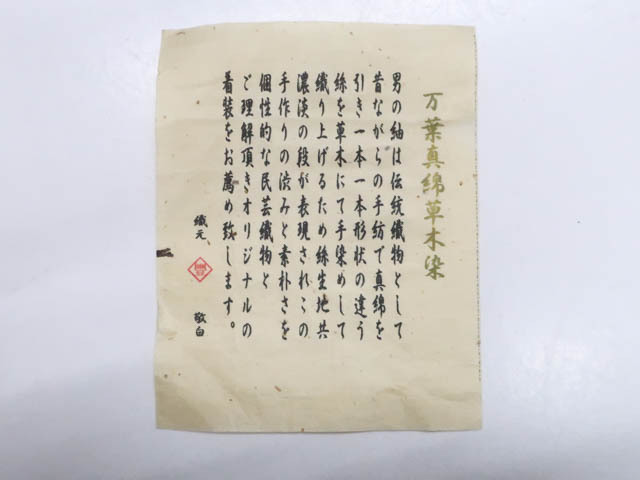 万葉真綿草木染
男の紬は伝統織物として
昔ながらの手紡で真綿を
引き一本一本形状の違う
絲を草木にて手染めして
織り上げるため絲生地共
濃淡の段が表現されこの
手作りの渋みと素朴さを
個性的な民芸織物と
ご理解頂きオリジナルの
着装をお薦め致します。
織元
敬白